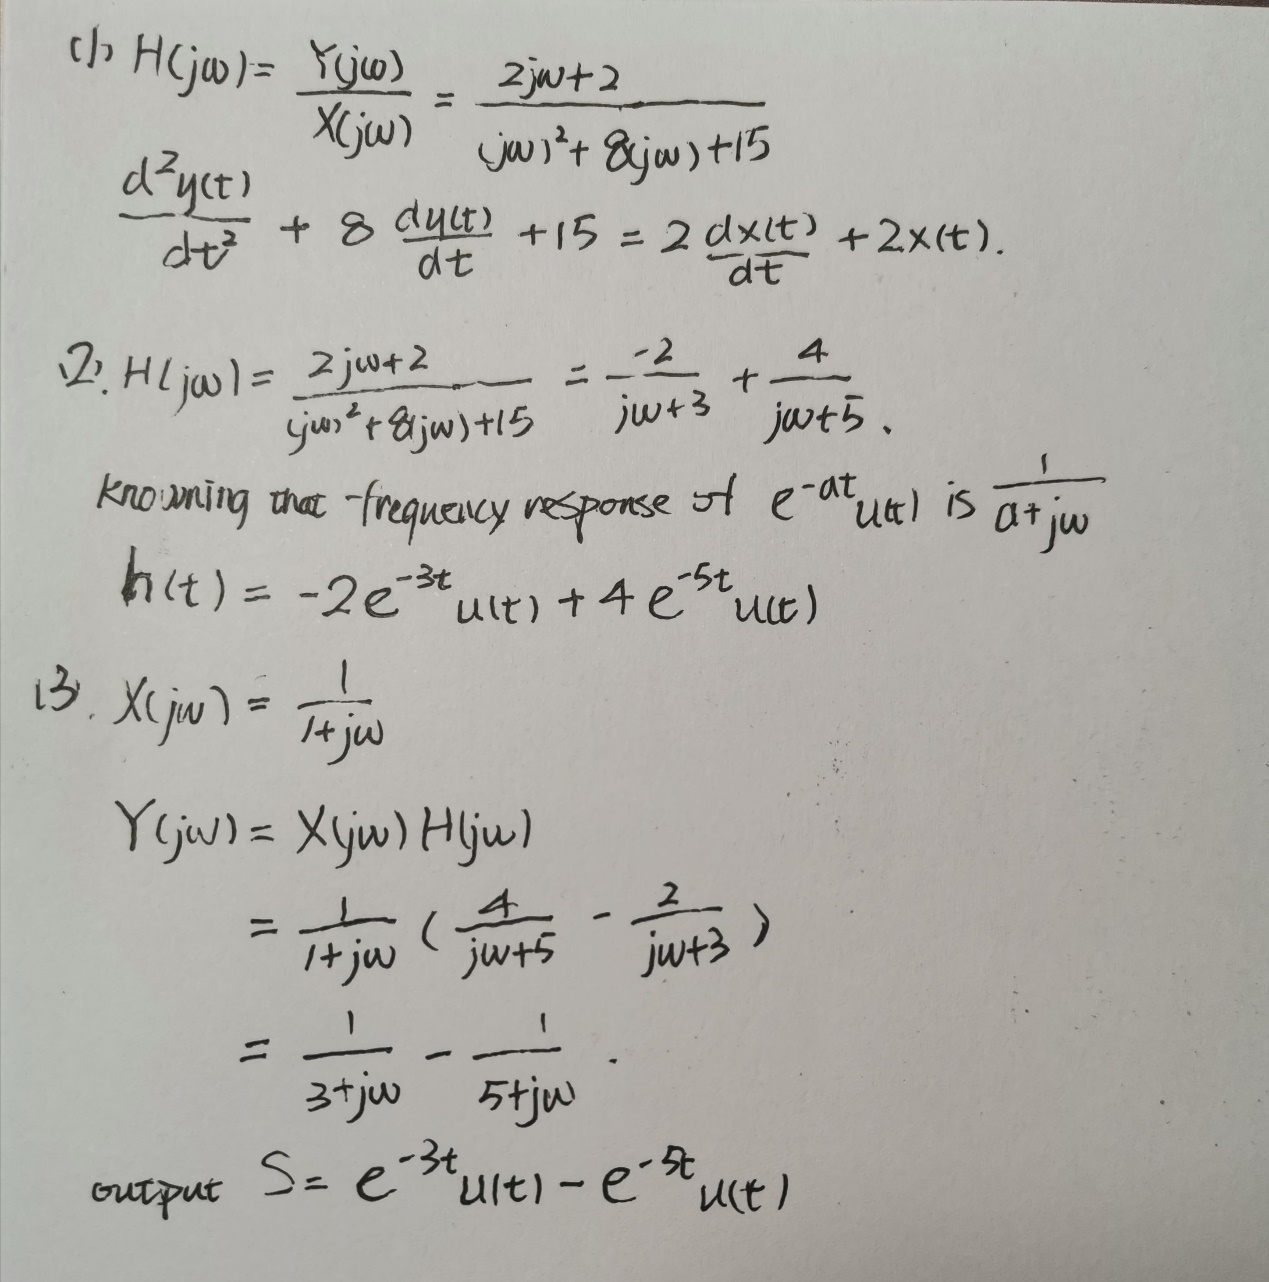 (1) H(jω) = Y(jω)/X(jω) = (2jω+2)/((jω)²+8(jω)+15)
d²y(t)/dt² + 8 dy(t)/dt +15 = 2 dx(t)/dt + 2x(t).
(2). H(jω) = (2jω+2)/((jω)²+8(jω)+15) = -2/(jω+3) + 4/(jω+5).
knowning that frequency response of e^{-at}u(t) is 1/(a+jω)
h(t) = -2e^{-3t}u(t) + 4e^{-5t}u(t)
(3). X(jω) = 1/(1+jω)
Y(jω) = X(jω) H(jω)
= 1/(1+jω) (4/(jω+5) - 2/(jω+3))
= 1/(3+jω) - 1/(5+jω).
output S = e^{-3t}u(t) - e^{-5t}u(t)